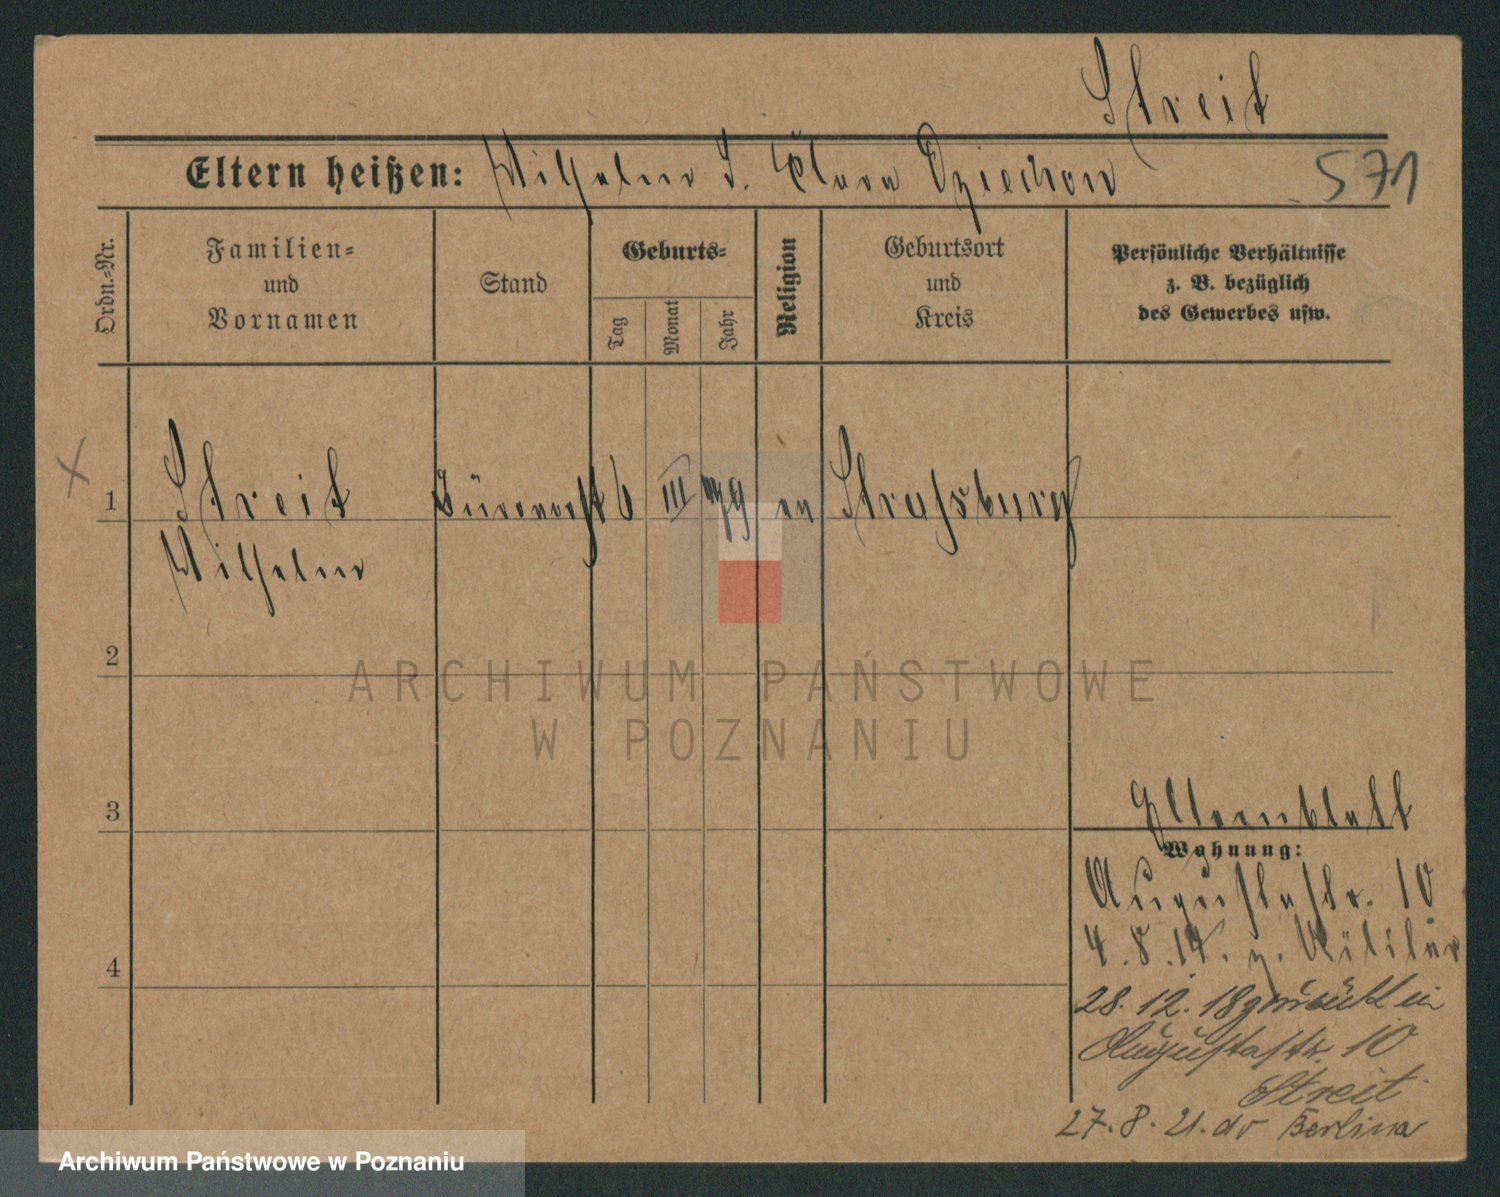 Streit
Eltern heißen: Wilhelm S. Clara Dziechon
571
Ordn.=Nr.
Familien=
und
Vornamen
Stand
Geburts=
Tag
Monat
Jahr
Religion
Geburtsort
und
Kreis
Persönliche Verhältnisse
z. B. bezüglich
des Gewerbes usw.
x
1 Streit 6 III ev Strassburg
Wilhelm
2
ARCHIWUM PAŃSTWOWE
W POZNANIU
3
Elternblatt
Wohnung:
Augustastr. 10
4. 8. 14. z. Militär
4
28. 12. 18 zurück in
Augustastr. 10
Streit
27. 8. 21. do Berlina
Archiwum Państwowe w Poznaniu